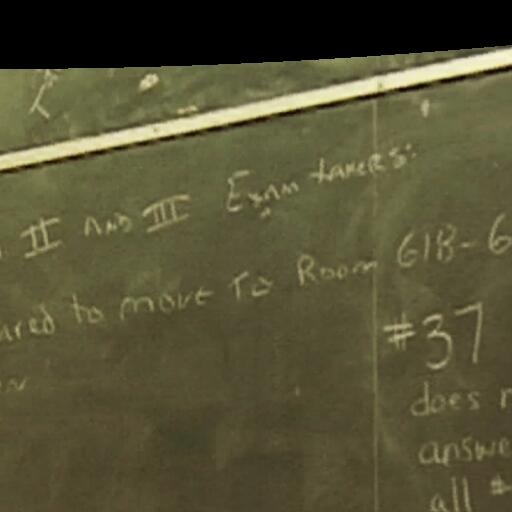 II AND III Exam takers:
ared to move To Room 61B-6
#37
does
answe
all #